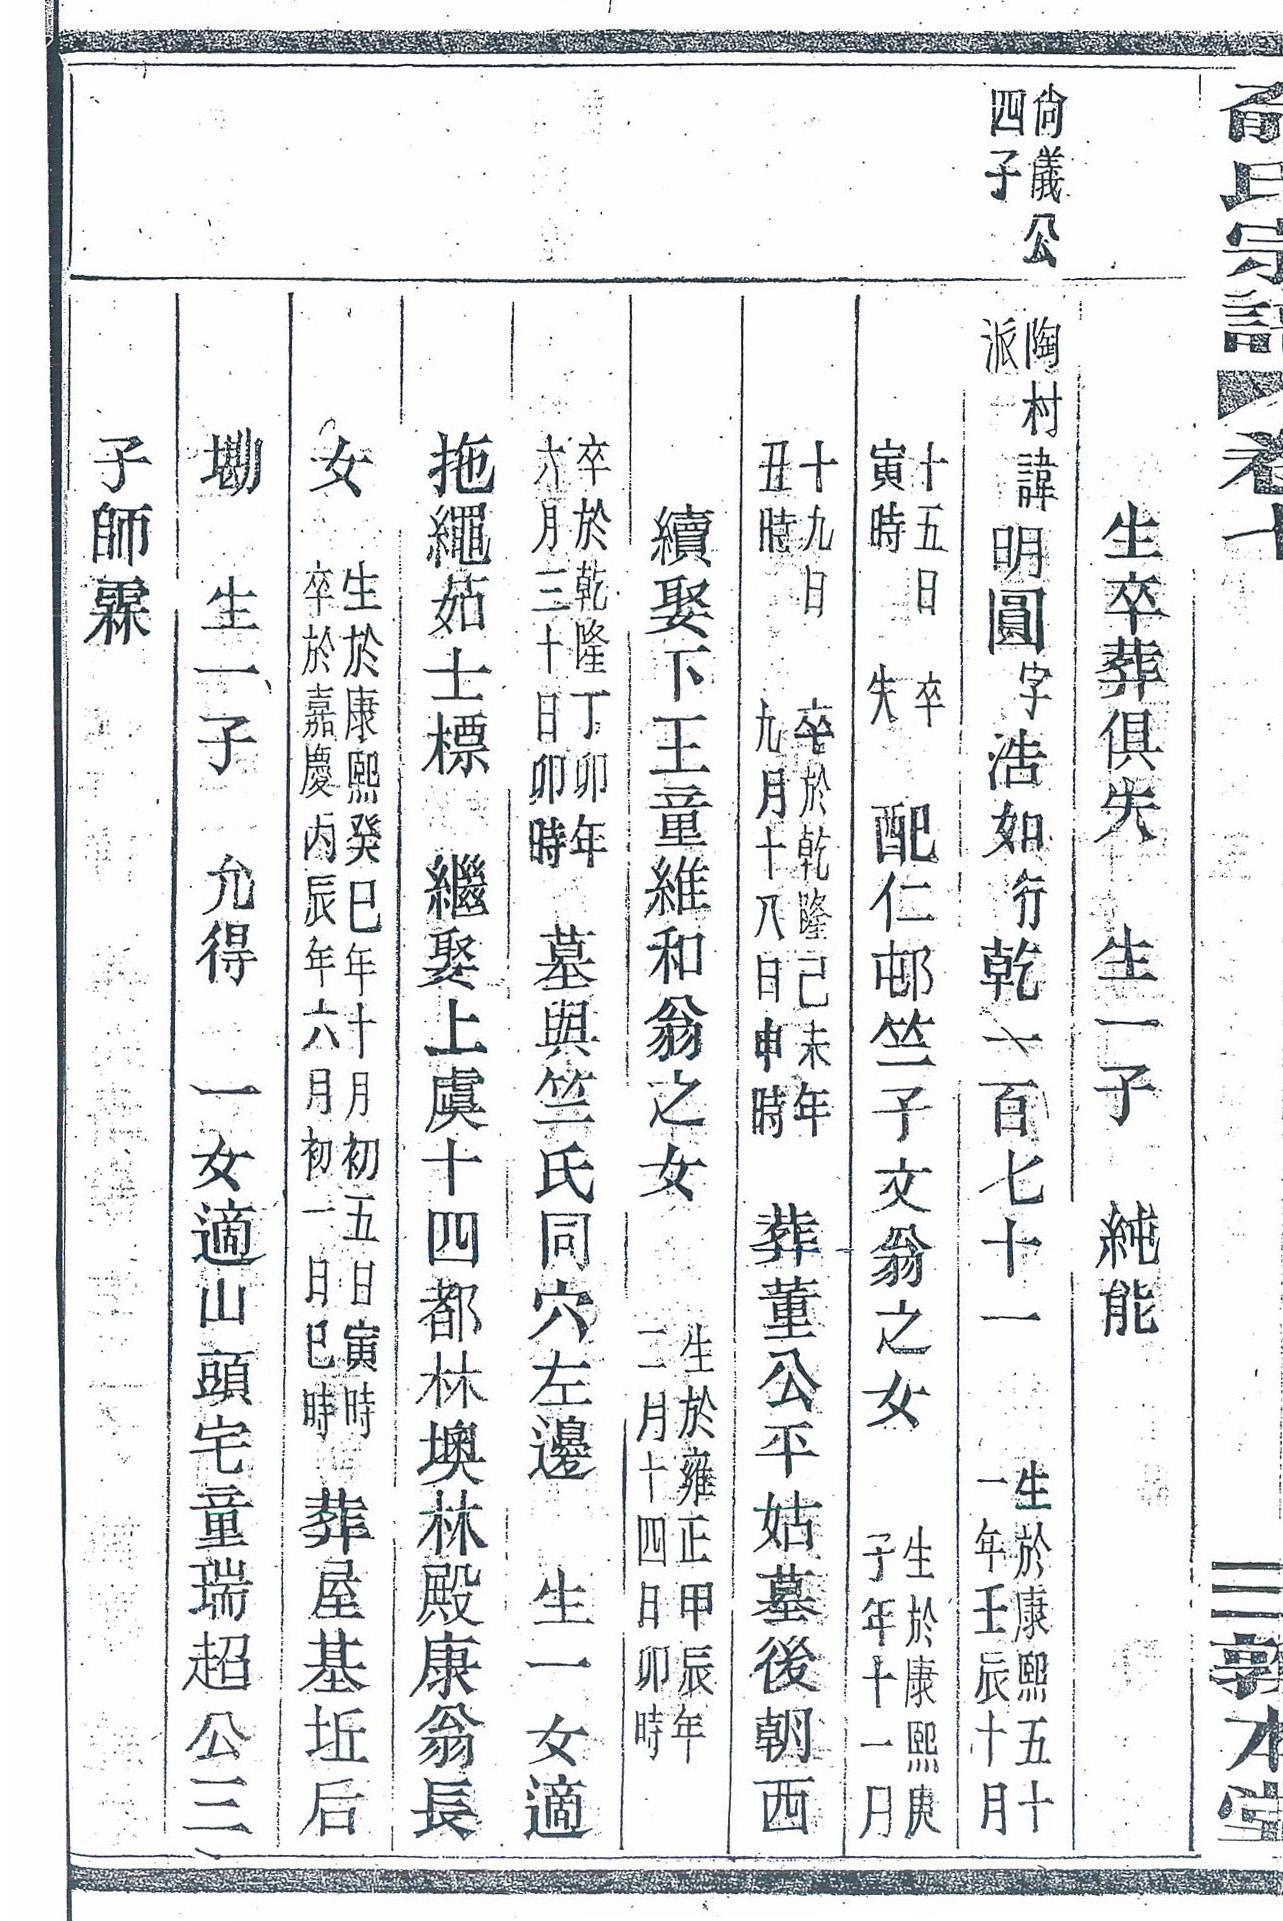 俞氏宗譜 卷十 三 敦本堂
生卒葬俱失 生一子 純能
尚儀公
四子
陶村
派
諱明圓字浩如行乾一百七十一 生於康熙五十
一年壬辰十月
十五日 卒
寅時 失
配仁邨竺子文翁之女 生於康熙庚
子年十一月
十九日 卒於乾隆己未年
丑時 九月十八日申時
葬董公平姑墓後朝西
續娶下王童維和翁之女 生於雍正甲辰年
二月十四日卯時
卒於乾隆丁卯年
六月三十日卯時
墓與竺氏同穴左邊 生一女適
拖繩茹士標 繼娶上虞十四都林墺林殿康翁長
女 生於康熙癸巳年十月初五日寅時
卒於嘉慶丙辰年六月初一日巳時
葬屋基坵后
墈 生一子 允得 一女適山頭宅童瑞超公三
子師霖